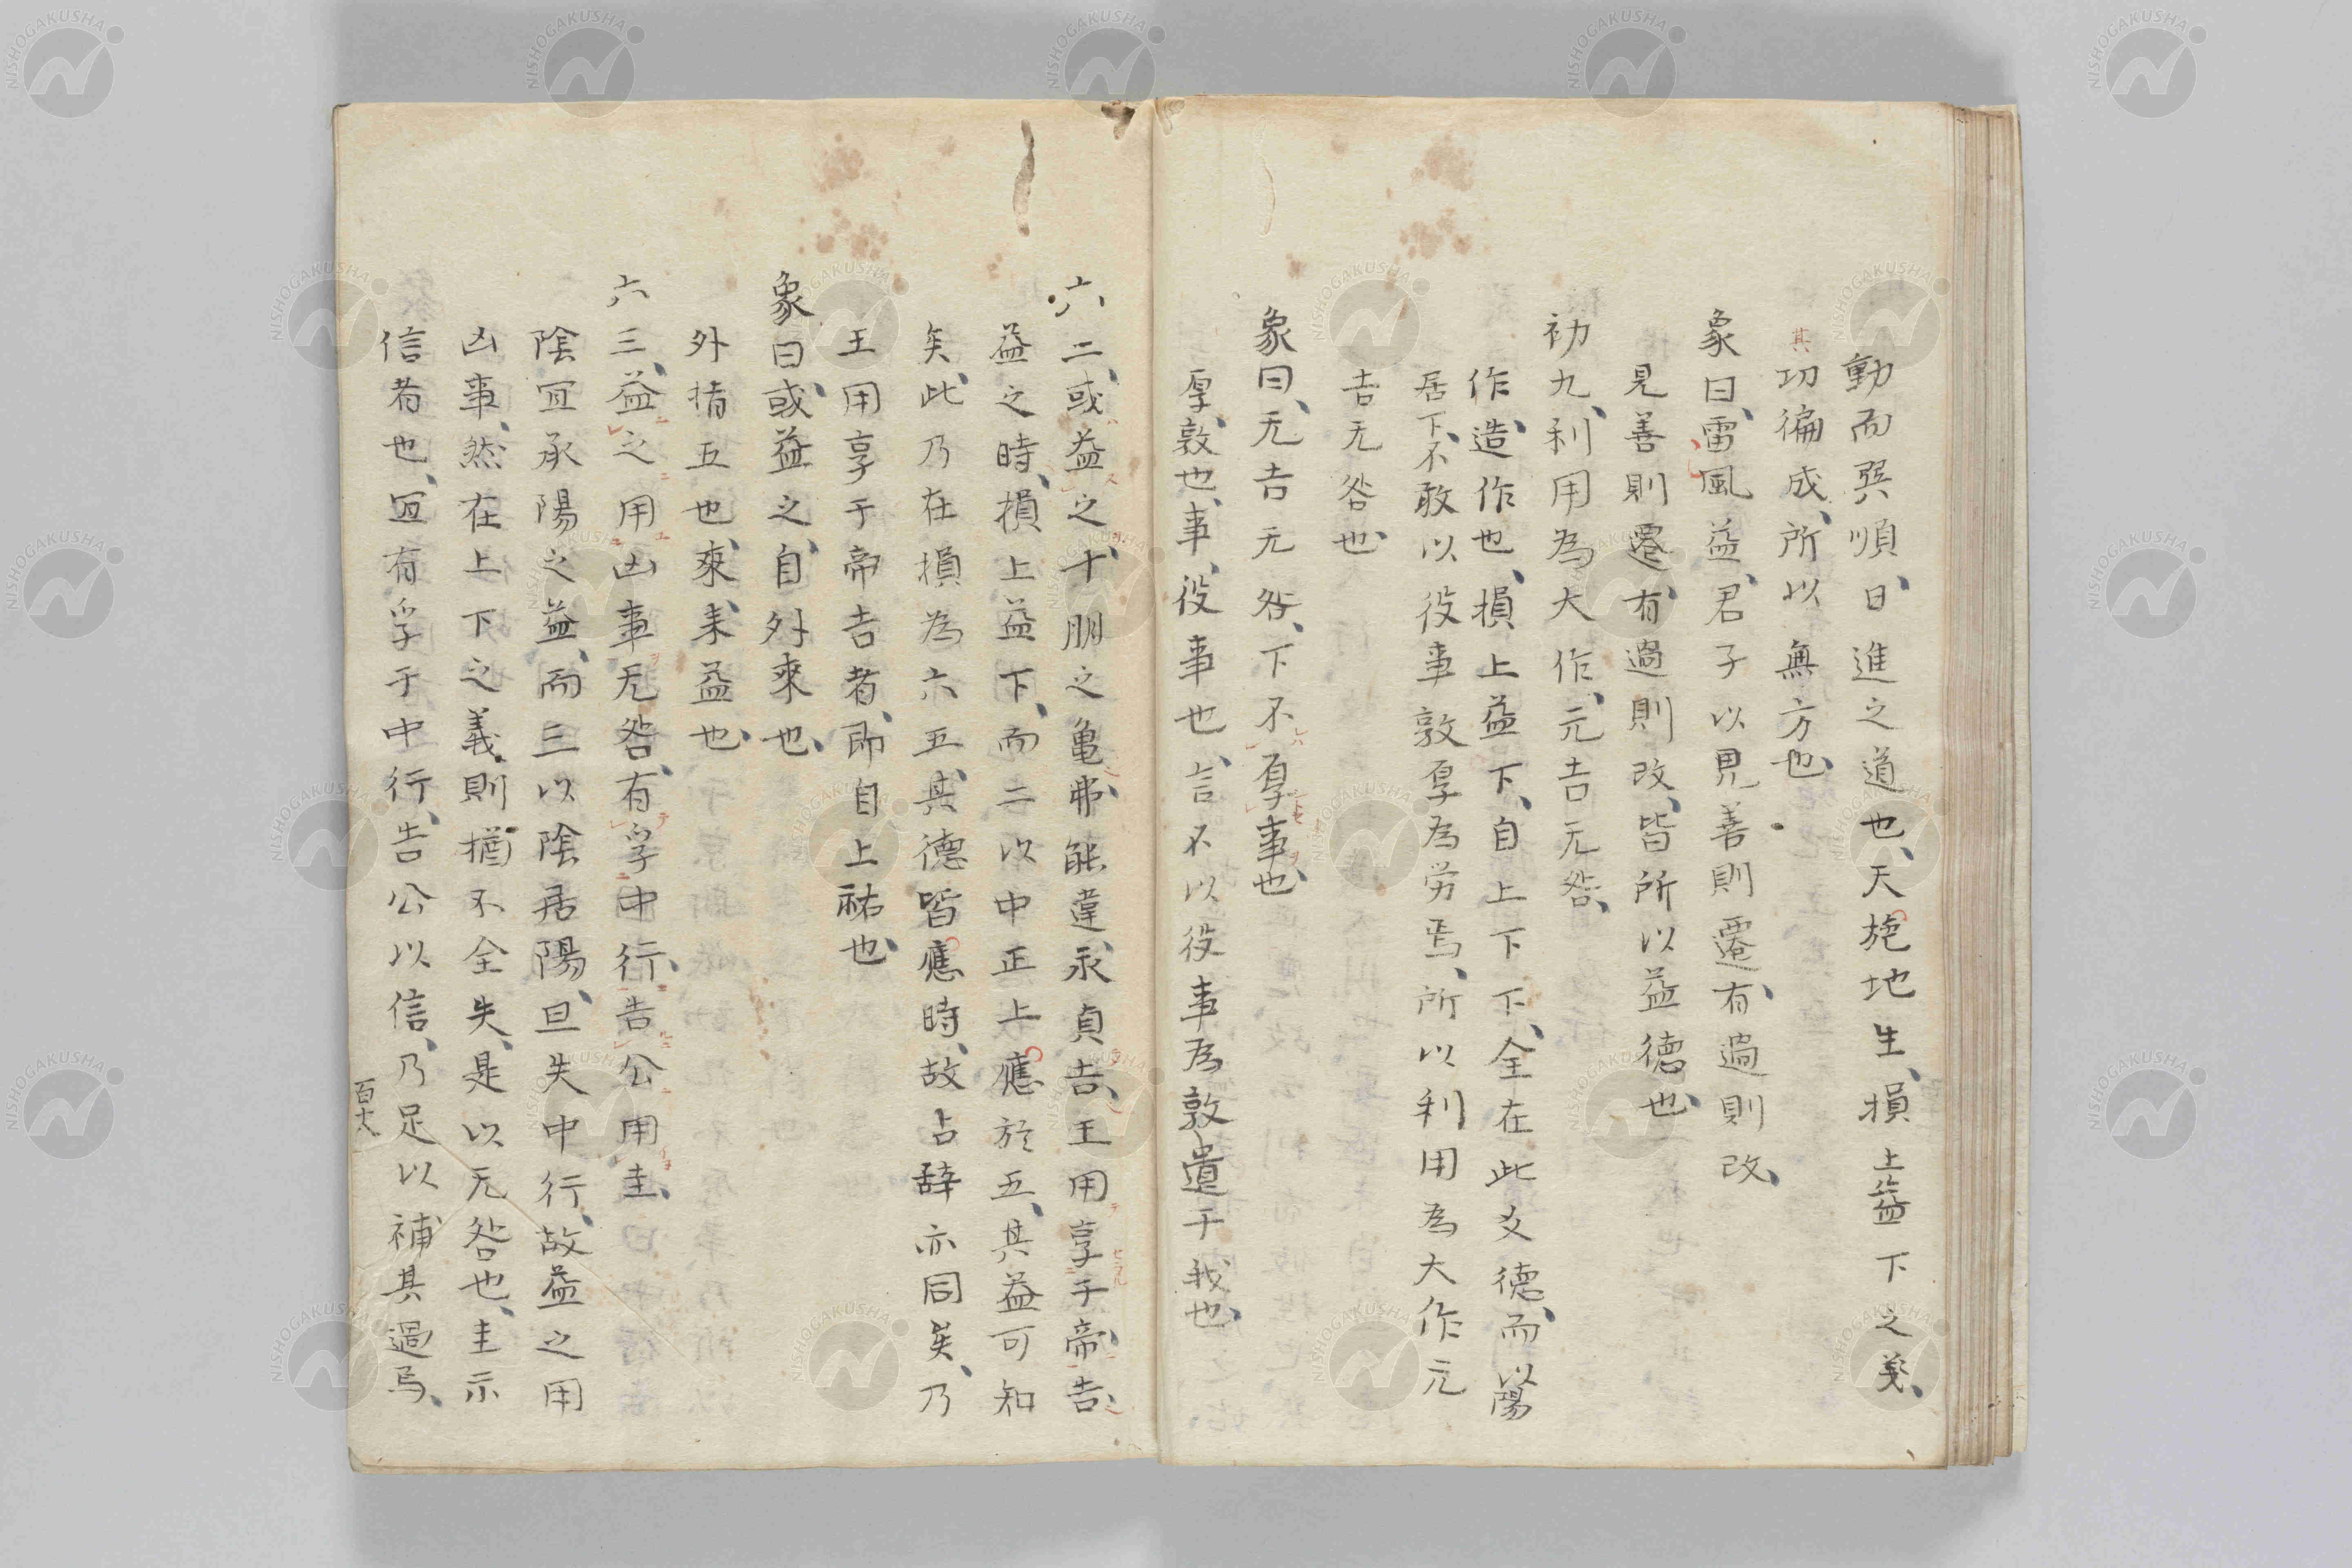 動而巽順、日進之道也、天施地生、損上益下之義、
其功徧成、所以無方也、
象曰、雷風益、君子以見善則遷、有過則改、
見善則遷、有過則改、皆所以益德也、
初九、利用為大作、元吉无咎、
作、造作也、損上益下、自上下下、全在此爻德、而以陽
居下、不敢以役事敦厚為労焉、所以利用為大作元
吉无咎也、
象曰、元吉无咎、下不厚事也、
厚、敦也、事、役事也、言不以役事為敦遺于我也、
六二、或益之、十朋之亀、弗能違、永貞吉、王用享于帝、吉、
益之時、損上益下、而二以中正上應於五、其益可知
矣、此乃在損為六五、其德皆應時、故占辞亦同矣、乃
王用享于帝吉者、即自上祐也、
象曰、或益之、自外來也、
外指五也、來、来益也、
六三、益之用凶事、无咎、有孚中行、告公用圭、
陰冝承陽之益、而三以陰居陽、且失中行、故益之用
凶事、然在上下之義、則猶不全失、是以无咎也、圭示
信者也、冝有孚于中行、告公以信、乃足以補其過焉、
百十六
NISHOGAKUSHA